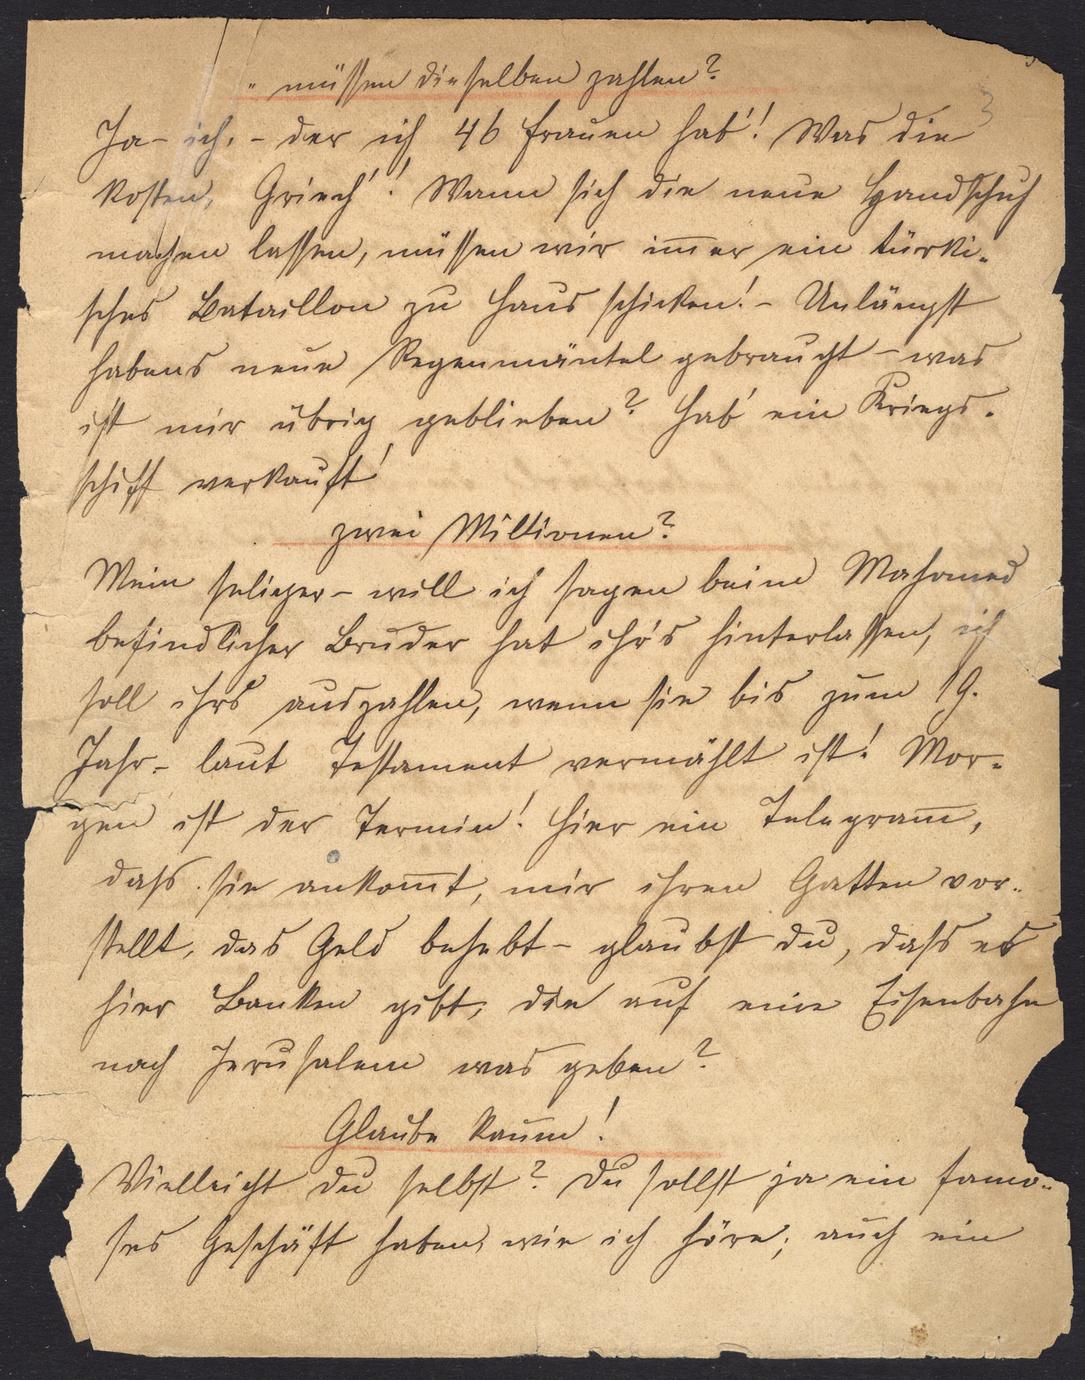 „ müssen dieselben zahlen?
3
Ja – ich, – der ich 46 Frauen hab'! Was die
kosten, Griech'! Wann sich die neue Handschuh
machen lassen, müssen wir im̄er ein türki-
sches Bataillon zu Haus schicken! – Unlängst
habens neue Regenmäntel gebraucht – was
ist mir übrig geblieben? Hab' ein Kriegs-
schiff verkauft!
zwei Millionen?
Mein seliger – will ich sagen beim Mahomed
befindlicher Bruder hat ihr's hinterlassen, ich
soll ihrs auszahlen, wenn sie bis zum 19.
Jahr – laut Testament vermählt ist! Mor-
gen ist der Termin! Hier ein Telegram̄,
dass sie ankom̄t, mir ihren Gatten vor-
stellt, das Geld behebt – glaubst du, dass es
hier Banken gibt, die auf eine Eisenbahn
nach Jerusalem was geben?
Glaube kaum!
Vielleicht du selbst? Du sollst ja ein famo-
ses Geschäft haben, wie ich höre; auch ein